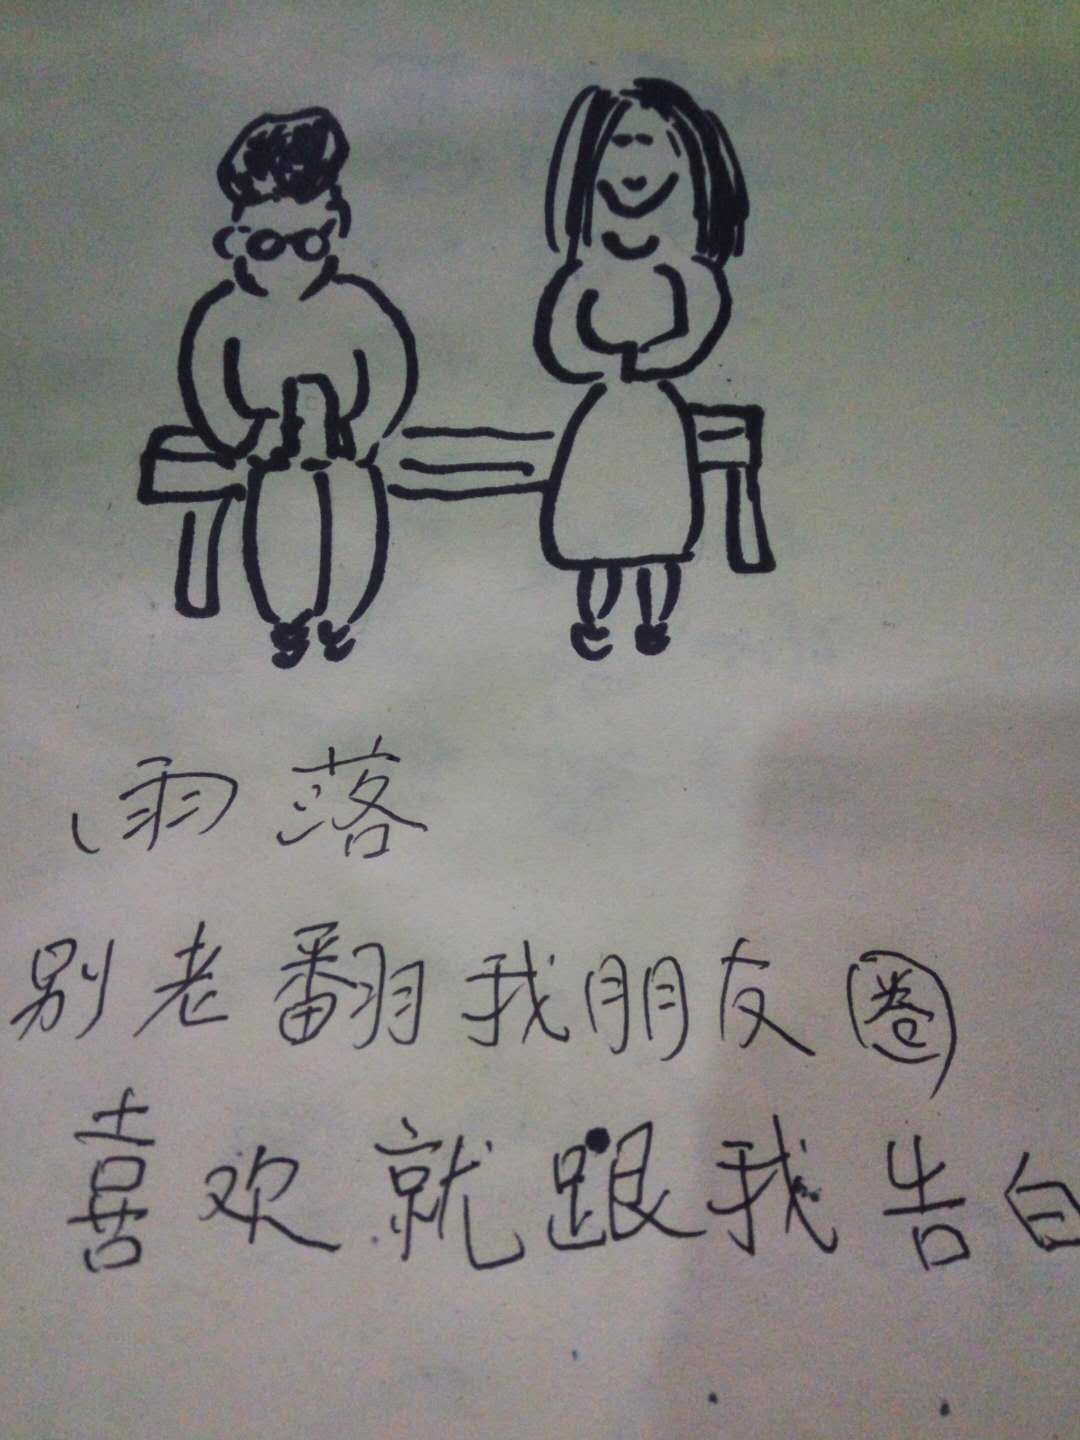 雨落
别老翻我朋友圈
喜欢就跟我告白